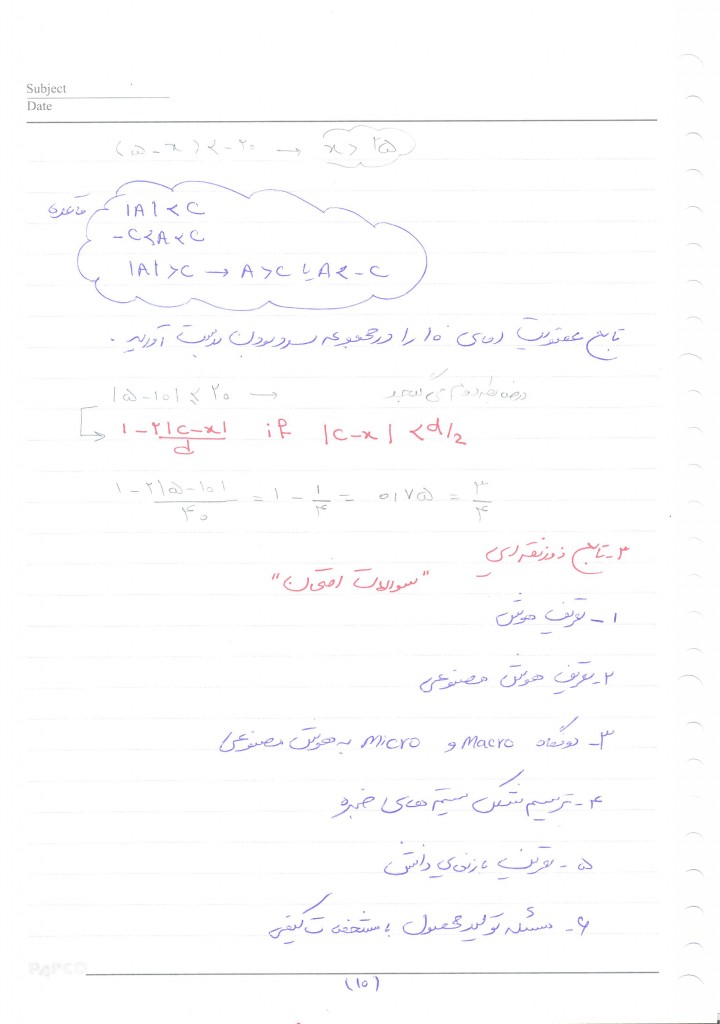 Subject
Date
(۵-x) < -۲۰ → x > ۲۵
قاعده
|A| < C
-C < A < C
|A| > C → A > C یا A < -C
تابع عضویت دمای ۱۰ را در مجموعه سرد بودن بدست آورید.
|۵-۱۰| ≤ ۲۰ →
1-۲|c-x|/d if |c-x| < d/2
۱-۲|۵-۱۰|/۴۰ = ۱ - ۱/۴ = ۰/۷۵ = ۳/۴
۳- تابع ذوزنقه ای
"سوالات امتحان"
۱- تعریف هوش
۲- تعریف هوش مصنوعی
۳- نگاه Macro و Micro به هوش مصنوعی
۴- ترسیم شکل سیستم های خبره
۵- تعریف بازنمایی دانش
۶- مسئله تولید محصول با مشخصات کیفی
PAPCO
(۱۰)